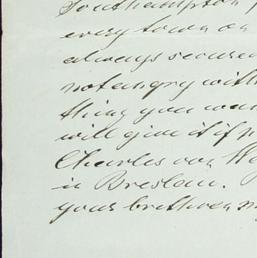 Southampton
every town on
always secure
not angry with
thing you wan
will give it if
Charles von
in Breslau.
your brethren